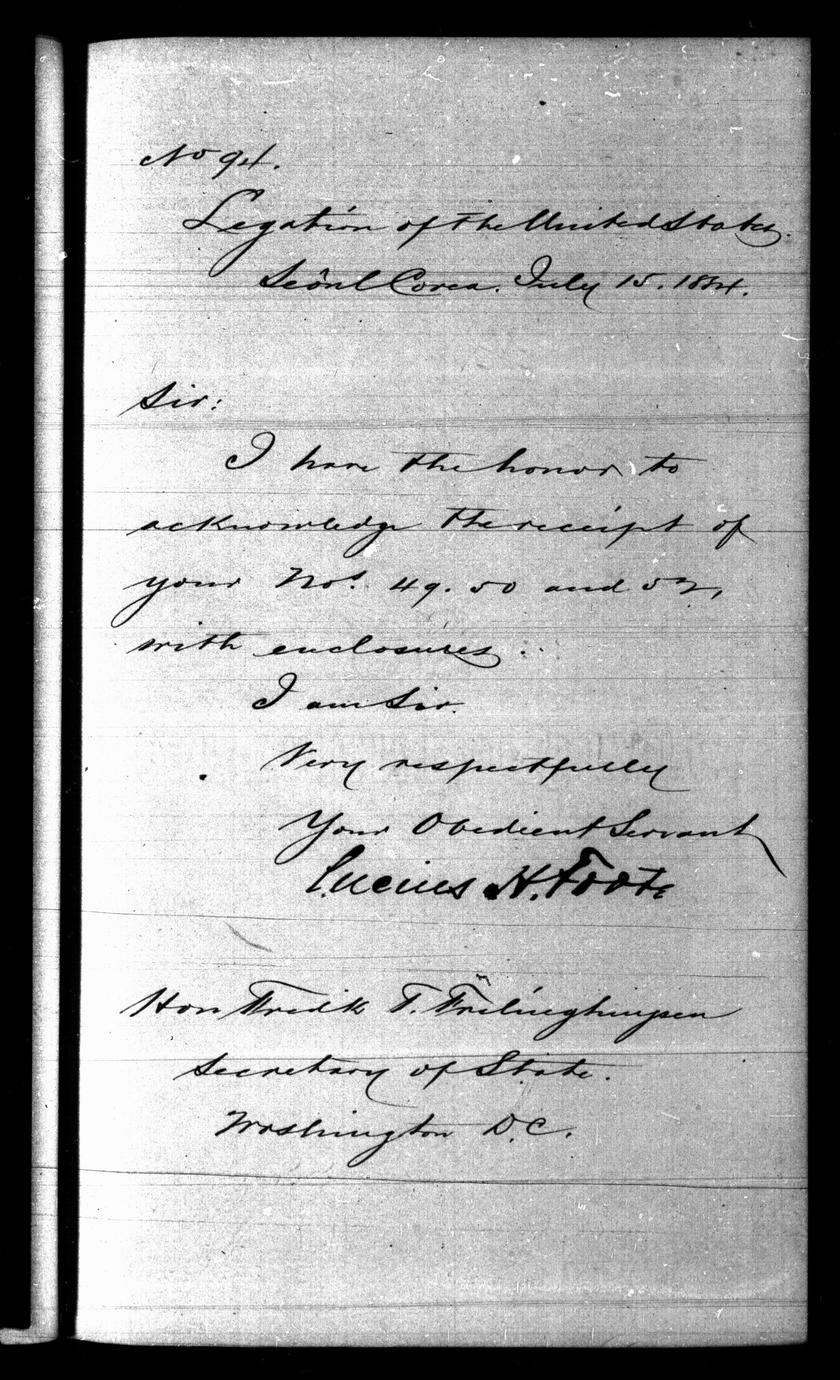 No 94.
Legation of the United States.
Seöul Corea. July 15. 1884.
Sir:
I have the honor to
acknowledge the receipt of
your Nos. 49. 50 and
with enclosures.
I am Sir.
Very respectfully
Your Obedient Servant
Lucius H. Foote
Hon Fredk T. Frelinghuysen
Secretary of State.
Washington D.C.